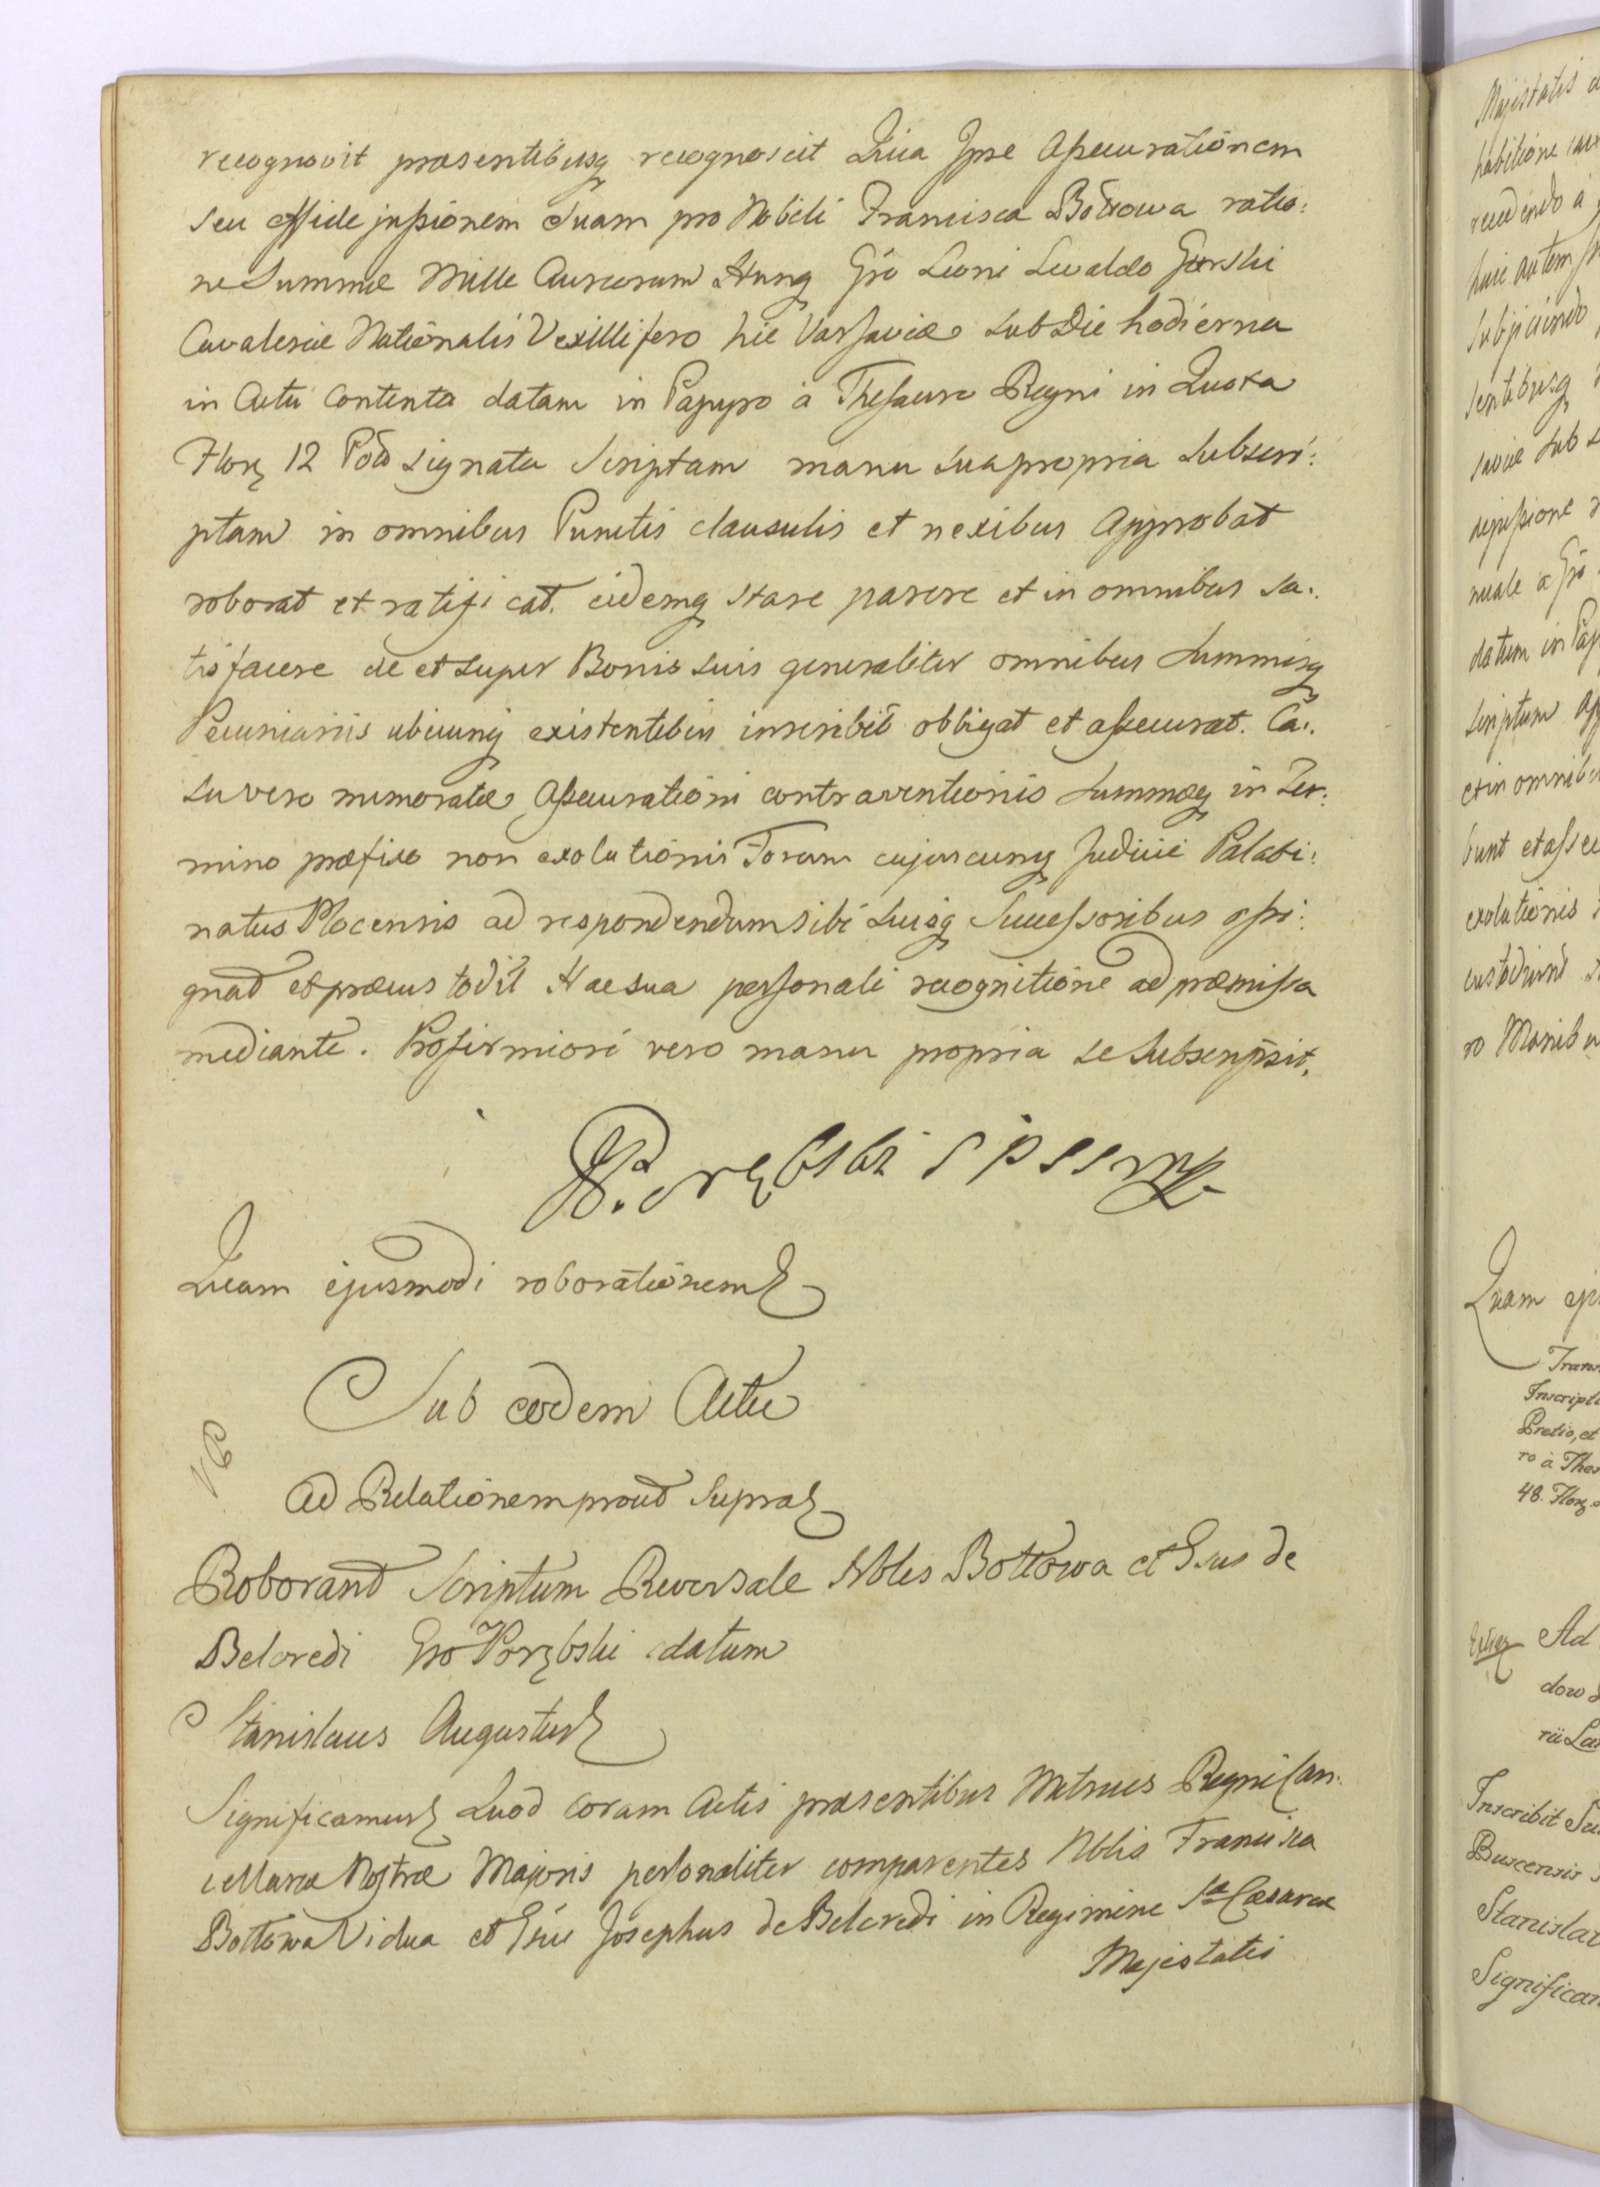 recognovit præsentibusq recognoscit Quia Ipse Assecurationem
seu Fide jussionem Suam pro Nobili Francisca Bottowa ratio:
ne Summæ Mille Aureorum Hung Gso Leoni Lewaldo Gorski
Cavaleriæ Nationalis Vexillifero hic Varsaviæ sub Die hodierna
in Actu contenta datam in Papyro à Thesauro Regni in Quota
Flor 12 Pol signata Scriptam manu sua propria subscri:
ptam in omnibus Punctis clausulis et nexibus Approbat
roborat et ratificat. eidemq stare parere et in omnibus sa:
tisfacere de et super Bonis suis generaliter omnibus Summisq
Pecuniariis ubicunq existentibus inscribit obligat et assecurat. Ca:
su vero memoratæ Assecurationi contraventionis Summæq in Ter:
mino præfixo non exolutionis Forum cujuscunq Judicii Palati:
natus Plocensis ad respondendum sibi suisq Successoribus assi:
gnat et præcustodit Hac sua personali recognitione ad præmissa
mediante. Pro firmiori vero manu propria se subscripsit.
Porębski ipse mp
Quam ejusmodi roborationem
Sub eodem Actu
Ad Relationem prout supra
Roborant Scriptum Reversale Nbles Bottowa et Gsus de
Belcredi Gso Porębski datum
Stanislaus Augustus
Significamus Quod coram Actis præsentibus Metrices Regni Can:
cellariæ Nostræ Majoris personaliter comparentes Nblis Francisca
Bottowa Vidua et Gsus Josephus de Belcredi in Regimine Sæ Cæsareæ
Majestatis
Majestatis
recedendo à
huic autem
subjiciendo
sentibusq
saviæ sub
datum in Pap
scriptum
et in omnib
bunt et assec
exolutionis
custodiunt
ro Manibu
Quam
Trans
Inscripti
Pretio, et
ro à Thes
48. Flor
Ad
dow
rii La
Inscribit Su
Buscensis
Stanislau
Significam